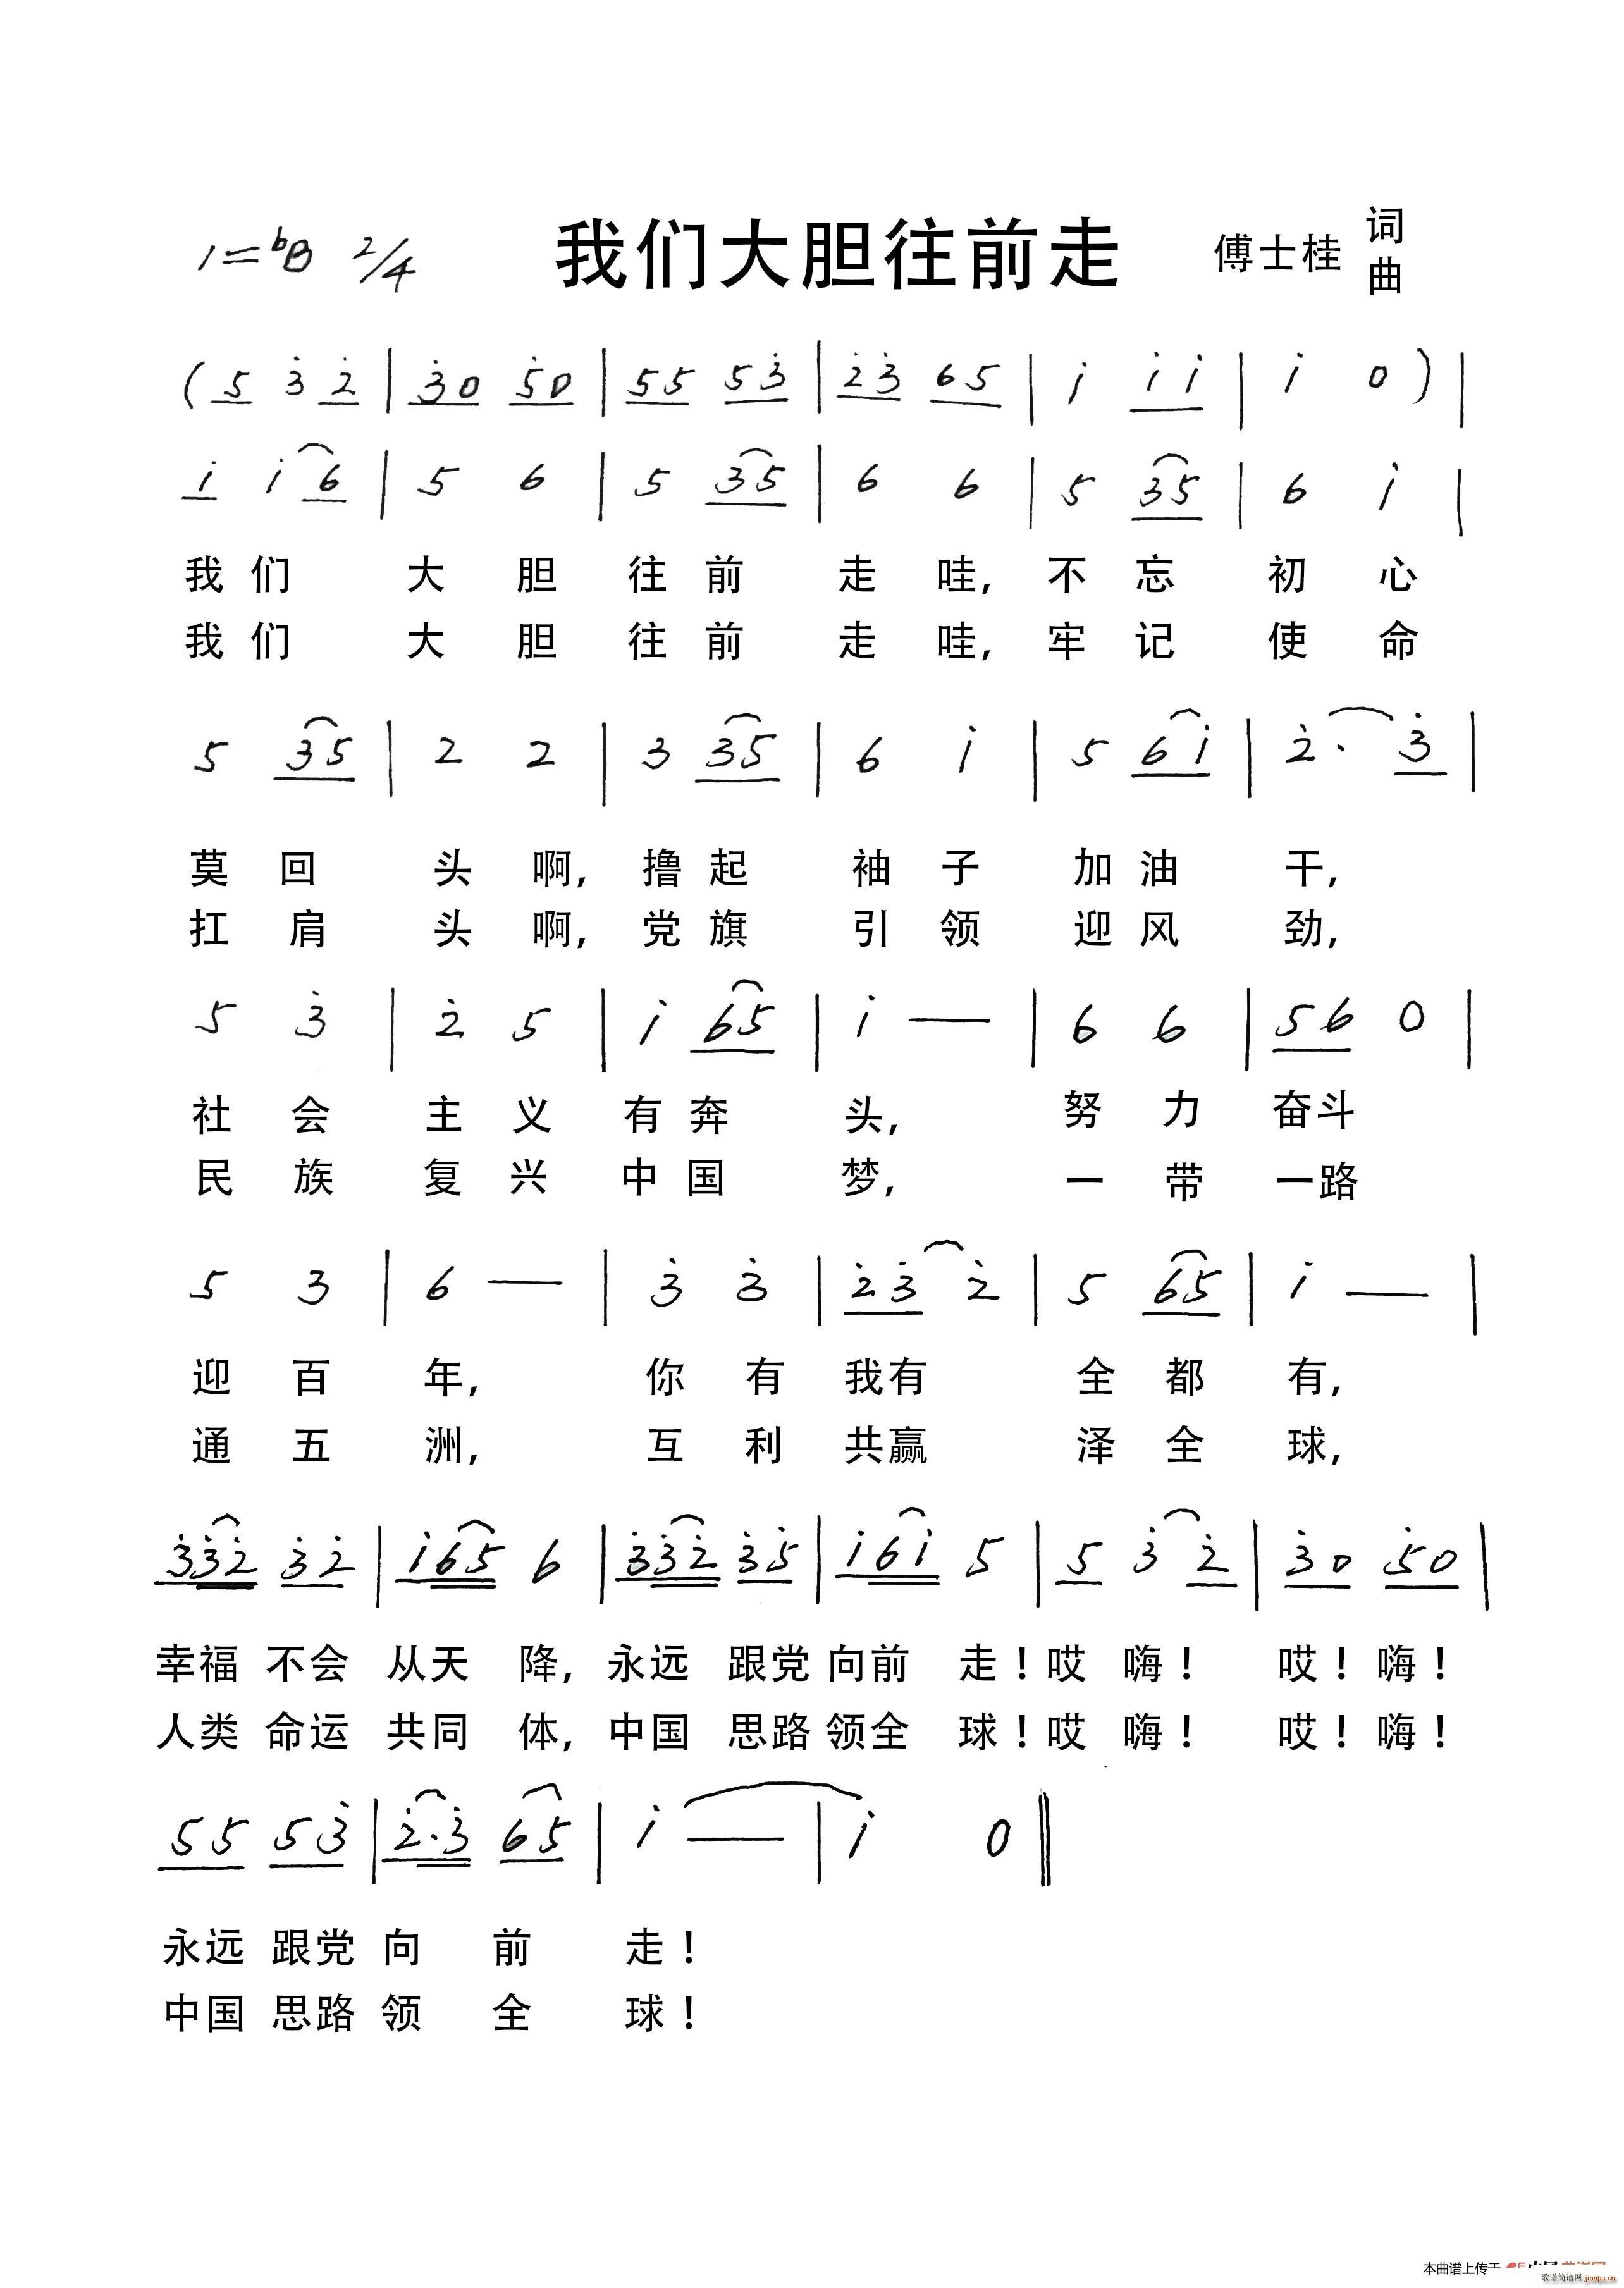 1=bB 2/4 我们大胆往前走 傅士桂 词曲
( 5 3̇ 2̇ | 3̇ 0 5̇ 0 | 5 5 5 3̇ | 2̇ 3̇ 6 5 | 1̇ 1̇ 1̇ | 1̇ 0 ) |
1̇ 1̇ 6 | 5 6 | 5 3 5 | 6 6 | 5 3 5 | 6 1̇ |
我 们 大 胆 往 前 走 哇, 不 忘 初 心
我 们 大 胆 往 前 走 哇, 牢 记 使 命
5 3 5 | 2 2 | 3 3 5 | 6 1̇ | 5 6 1̇ | 2̇ · 3̇ |
莫 回 头 啊, 撸 起 袖 子 加 油 干,
扛 肩 头 啊, 党 旗 引 领 迎 风 劲,
5 3̇ | 2̇ 5 | 1̇ 6 5 | 1̇ — | 6 6 | 5 6 0 |
社 会 主 义 有 奔 头, 努 力 奋斗
民 族 复 兴 中 国 梦, 一 带 一路
5 3 | 6 — | 3̇ 3̇ | 2̇ 3̇ 2̇ | 5 6 5 | 1̇ — |
迎 百 年, 你 有 我有 全 都 有,
通 五 洲, 互 利 共赢 泽 全 球,
3̇ 3̇ 2̇ 3̇ 2̇ | 1̇ 6 5 6 | 3̇ 3̇ 2̇ 3̇ 5̇ | 1̇ 6 1̇ 5 | 5 3̇ 2̇ | 3̇ 0 5̇ 0 |
幸福 不会 从天 降, 永远 跟党 向前 走！哎 嗨！ 哎！嗨！
人类 命运 共同 体, 中国 思路 领全 球！哎 嗨！ 哎！嗨！
5 5 5 3̇ | 2̇ · 3̇ 6 5 | 1̇ — | 1̇ 0 ‖
永远 跟党 向 前 走！
中国 思路 领 全 球！
本曲谱上传于
歌谱简谱网 jianpu.cn